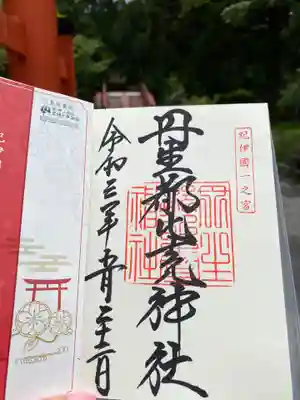 紀伊國一之宮
丹生都比売神社
令和三年五月二十二日